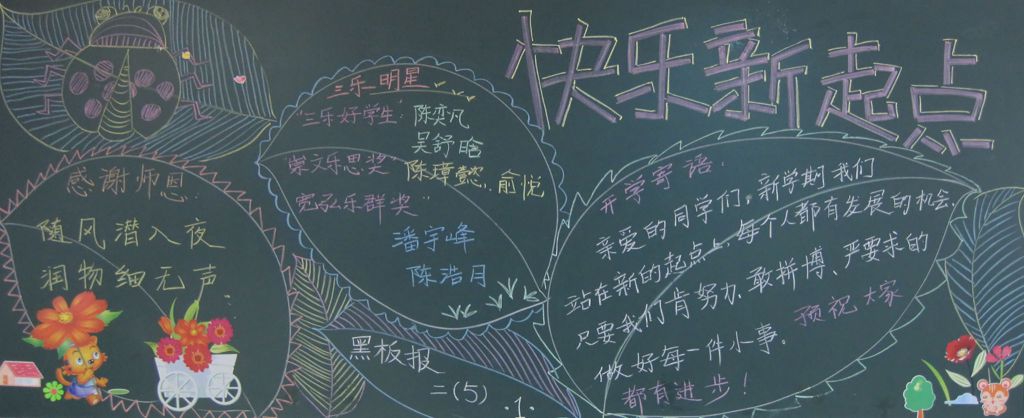 快乐新起点
感谢师恩
随风潜入夜
润物细无声.
三乐明星
"三乐好学生" 陈奕凡
吴舒晗
崇文乐思奖" 陈璋懿、俞悦
宽弘乐群奖"
潘宇峰
陈浩月
黑板报
二(5)
.1.
开学寄语
亲爱的同学们,新学期我们
站在新的起点上,每个人都有发展的机会,
只要我们肯努力、敢拼搏、严要求的
做好每一件小事。预祝大家
都有进步!